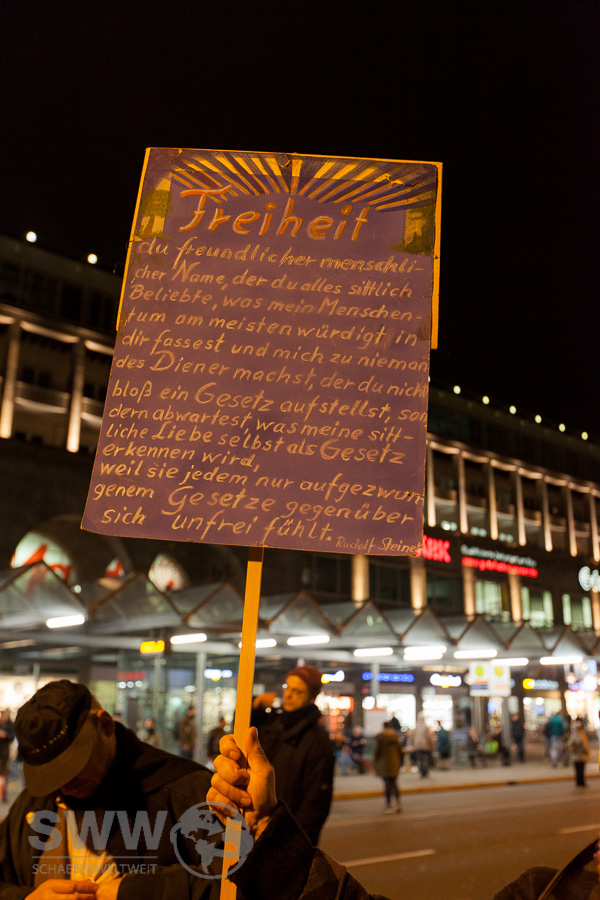 Freiheit
du freundlicher menschli-
cher Name, der du alles sittlich
Beliebte, was mein Menschen-
tum am meisten würdigt, in
dir fassest und mich zu nieman
des Diener machst, der du nicht
bloß ein Gesetz aufstellst, son
dern abwartest, was meine sitt-
liche Liebe selbst als Gesetz
erkennen wird,
weil sie jedem nur aufgezwun
genem Gesetze gegenüber
sich unfrei fühlt.
Rudolf Steiner
SWW
SCHAEFERWELTWEIT